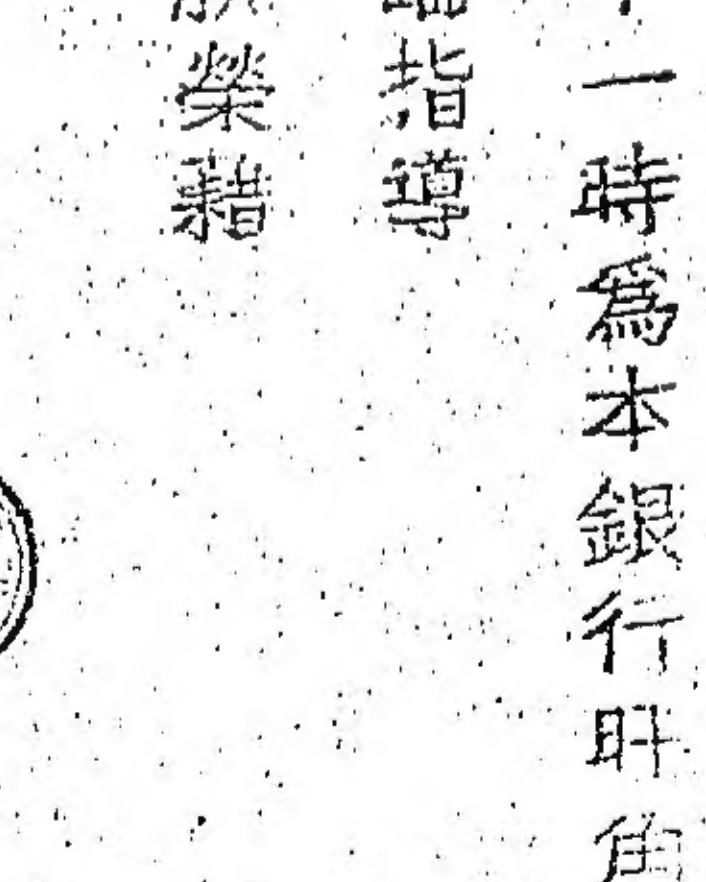 一時為本銀行
指導
榮藉